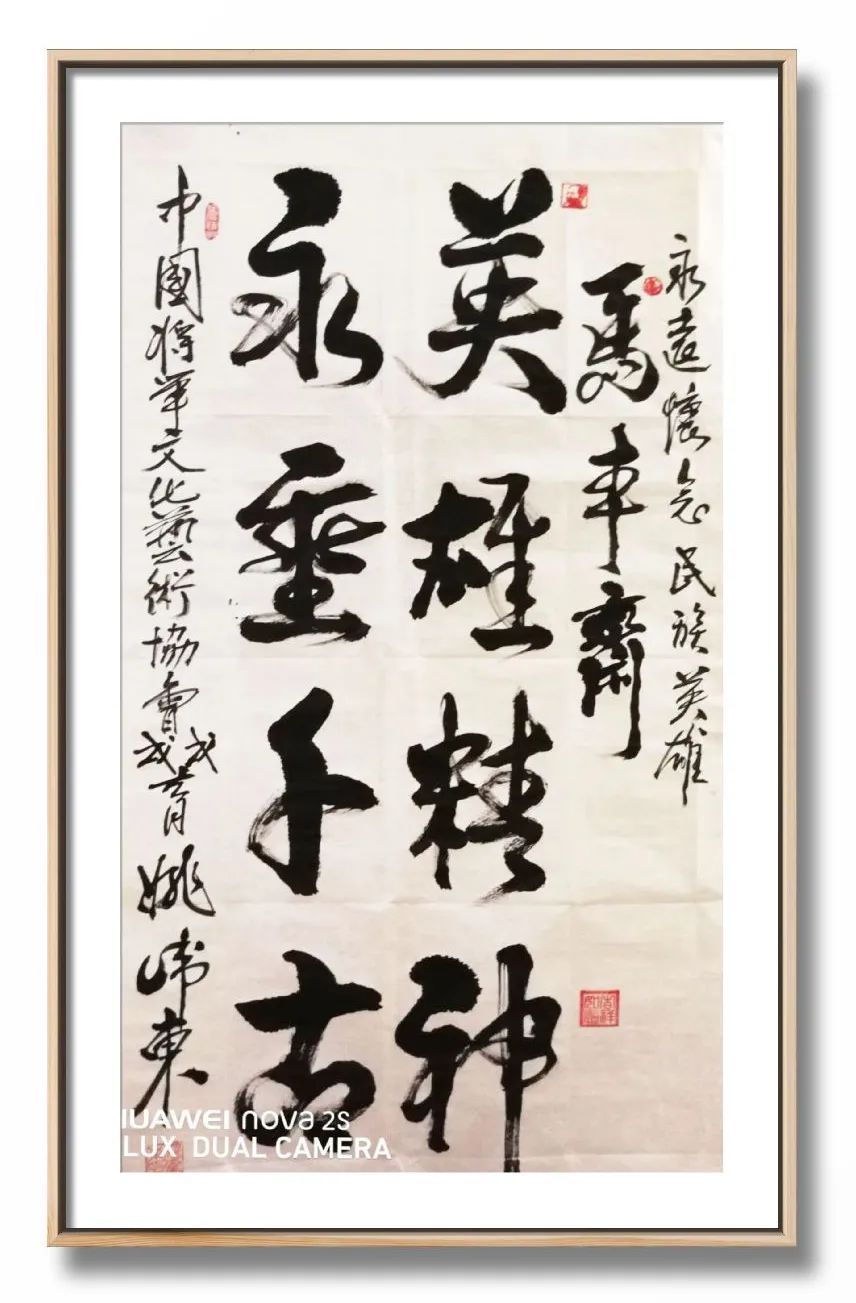 永遠懷念民族英雄
馬本齋
英雄精神
永垂千古
中國將軍文化藝術協會戊戌
姚東
HUAWEI nova 2S
LUX DUAL CAMERA